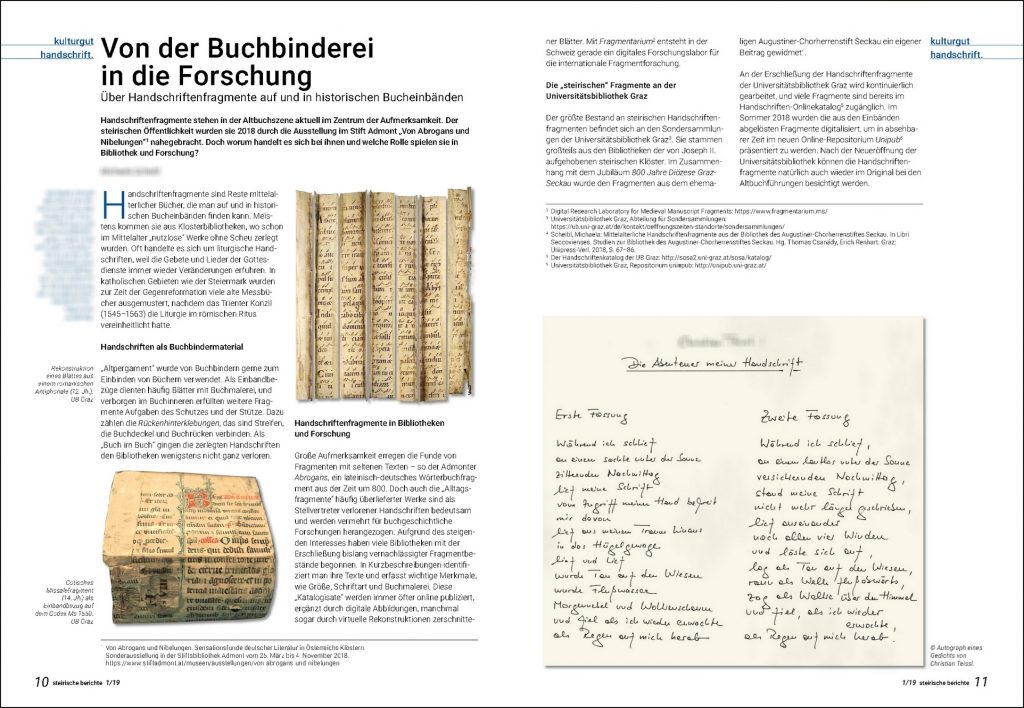 kulturgut
handschrift.
Von der Buchbinderei
in die Forschung
Über Handschriftenfragmente auf und in historischen Bucheinbänden
Handschriftenfragmente stehen in der Altbuchszene aktuell im Zentrum der Aufmerksamkeit. Der
steirischen Öffentlichkeit wurden sie 2018 durch die Ausstellung im Stift Admont „Von Abrogans und
Nibelungen“¹ nahegebracht. Doch worum handelt es sich bei ihnen und welche Rolle spielen sie in
Bibliothek und Forschung?
Handschriftenfragmente sind Reste mittelal-
terlicher Bücher, die man auf und in histori-
schen Bucheinbänden finden kann. Meis-
tens kommen sie aus Klosterbibliotheken, wo schon
im Mittelalter „nutzlose“ Werke ohne Scheu zerlegt
wurden. Oft handelte es sich um liturgische Hand-
schriften, weil die Gebete und Lieder der Gottes-
dienste immer wieder Veränderungen erfuhren. In
katholischen Gebieten wie der Steiermark wurden
zur Zeit der Gegenreformation viele alte Messbü-
cher ausgemustert, nachdem das Trienter Konzil
(1545–1563) die Liturgie im römischen Ritus
vereinheitlicht hatte.
Handschriften als Buchbindermaterial
„Altpergament“ wurde von Buchbindern gerne zum
Einbinden von Büchern verwendet. Als Einbandbe-
züge dienten häufig Blätter mit Buchmalerei, und
verborgen im Buchinneren erfüllten weitere Frag-
mente Aufgaben des Schutzes und der Stütze. Dazu
zählen die Rückenhinterklebungen, das sind Streifen,
die Buchdeckel und Buchrücken verbinden. Als
„Buch im Buch“ gingen die zerlegten Handschriften
den Bibliotheken wenigstens nicht ganz verloren.
Rekonstruktion
eines Blattes aus
einem romanischen
Antiphonale (12. Jh.).
UB Graz
Gotisches
Missalefragment
(14. Jh.) als
Einbandbezug auf
dem Codex Ms 1550.
UB Graz
Handschriftenfragmente in Bibliotheken
und Forschung
Große Aufmerksamkeit erregen die Funde von
Fragmenten mit seltenen Texten – so der Admonter
Abrogans, ein lateinisch-deutsches Wörterbuchfrag-
ment aus der Zeit um 800. Doch auch die „Alltags-
fragmente“ häufig überlieferter Werke sind als
Stellvertreter verlorener Handschriften bedeutsam
und werden vermehrt für buchgeschichtliche
Forschungen herangezogen. Aufgrund des steigen-
den Interesses haben viele Bibliotheken mit der
Erschließung bislang vernachlässigter Fragmentbe-
stände begonnen. In Kurzbeschreibungen identifi-
ziert man ihre Texte und erfasst wichtige Merkmale,
wie Größe, Schriftart und Buchmalerei. Diese
„Katalogisate“ werden immer öfter online publiziert,
ergänzt durch digitale Abbildungen, manchmal
sogar durch virtuelle Rekonstruktionen zerschnitte-
¹ Von Abrogans und Nibelungen. Sensationsfunde deutscher Literatur in Österreichs Klöstern.
Sonderausstellung in der Stiftsbibliothek Admont vom 25. März bis 4. November 2018.
https://www.stiftadmont.at/museen/ausstellungen/von abrogans und nibelungen
10 steirische berichte 1/19
ner Blätter. Mit Fragmentarium² entsteht in der
Schweiz gerade ein digitales Forschungslabor für
die internationale Fragmentforschung.
Die „steirischen“ Fragmente an der
Universitätsbibliothek Graz
Der größte Bestand an steirischen Handschriften-
fragmenten befindet sich an den Sondersammlun-
gen der Universitätsbibliothek Graz³. Sie stammen
großteils aus den Bibliotheken der von Joseph II.
aufgehobenen steirischen Klöster. Im Zusammen-
hang mit dem Jubiläum 800 Jahre Diözese Graz-
Seckau wurde den Fragmenten aus dem ehema-
ligen Augustiner-Chorherrenstift Seckau ein eigener
Beitrag gewidmet⁴.
An der Erschließung der Handschriftenfragmente
der Universitätsbibliothek Graz wird kontinuierlich
gearbeitet, und viele Fragmente sind bereits im
Handschriften-Onlinekatalog⁵ zugänglich. Im
Sommer 2018 wurden die aus den Einbänden
abgelösten Fragmente digitalisiert, um in absehba-
rer Zeit im neuen Online-Repositorium Unipub⁶
präsentiert zu werden. Nach der Neueröffnung der
Universitätsbibliothek können die Handschriften-
fragmente natürlich auch wieder im Original bei den
Altbuchführungen besichtigt werden.
kulturgut
handschrift.
² Digital Research Laboratory for Medieval Manuscript Fragments: https://www.fragmentarium.ms/
³ Universitätsbibliothek Graz, Abteilung für Sondersammlungen:
https://ub.uni-graz.at/de/kontakt/oeffnungszeiten-standorte/sondersammlungen/
⁴ Scheibl, Michaela: Mittelalterliche Handschriftenfragmente aus der Bibliothek des Augustiner-Chorherrenstiftes Seckau. In: Libri
Seccovienses. Studien zur Bibliothek des Augustiner-Chorherrenstiftes Seckau. Hg. Thomas Csanády, Erich Renhart. Graz:
Unipress-Verl. 2018, S. 67–86.
⁵ Der Handschriftenkatalog der UB Graz: http://sosa2.uni-graz.at/sosa/katalog/
⁶ Universitätsbibliothek Graz, Repositorium unipub: http://unipub.uni-graz.at/
Die Abenteuer meiner Handschrift
Erste Fassung
Während ich schlief
an einem sachte unter der Sonne
zitternden Nachmittag
lief meine Schrift
vom Zugriff meiner Hand befreit
mir davon
lief aus meinem Traum hinaus
in das Hügelgewoge
lief und lief
wurde Tau auf den Wiesen
wurde Flußwasser
Morgennebel und Wolkenschaum
und fiel als ich wieder erwachte
als Regen auf mich herab
Zweite Fassung
Während ich schlief,
an einem lautlos unter der Sonne
versickernden Nachmittag,
stand meine Schrift
nicht mehr länger geschrieben,
lief auseinander
nach allen vier Winden
und löste sich auf,
lag als Tau auf den Wiesen,
rann als Welle flußabwärts,
zog als Wolke über den Himmel
und fiel, als ich wieder
erwachte,
als Regen auf mich herab.
© Autograph eines
Gedichts von
Christian Teissl.
1/19 steirische berichte 11